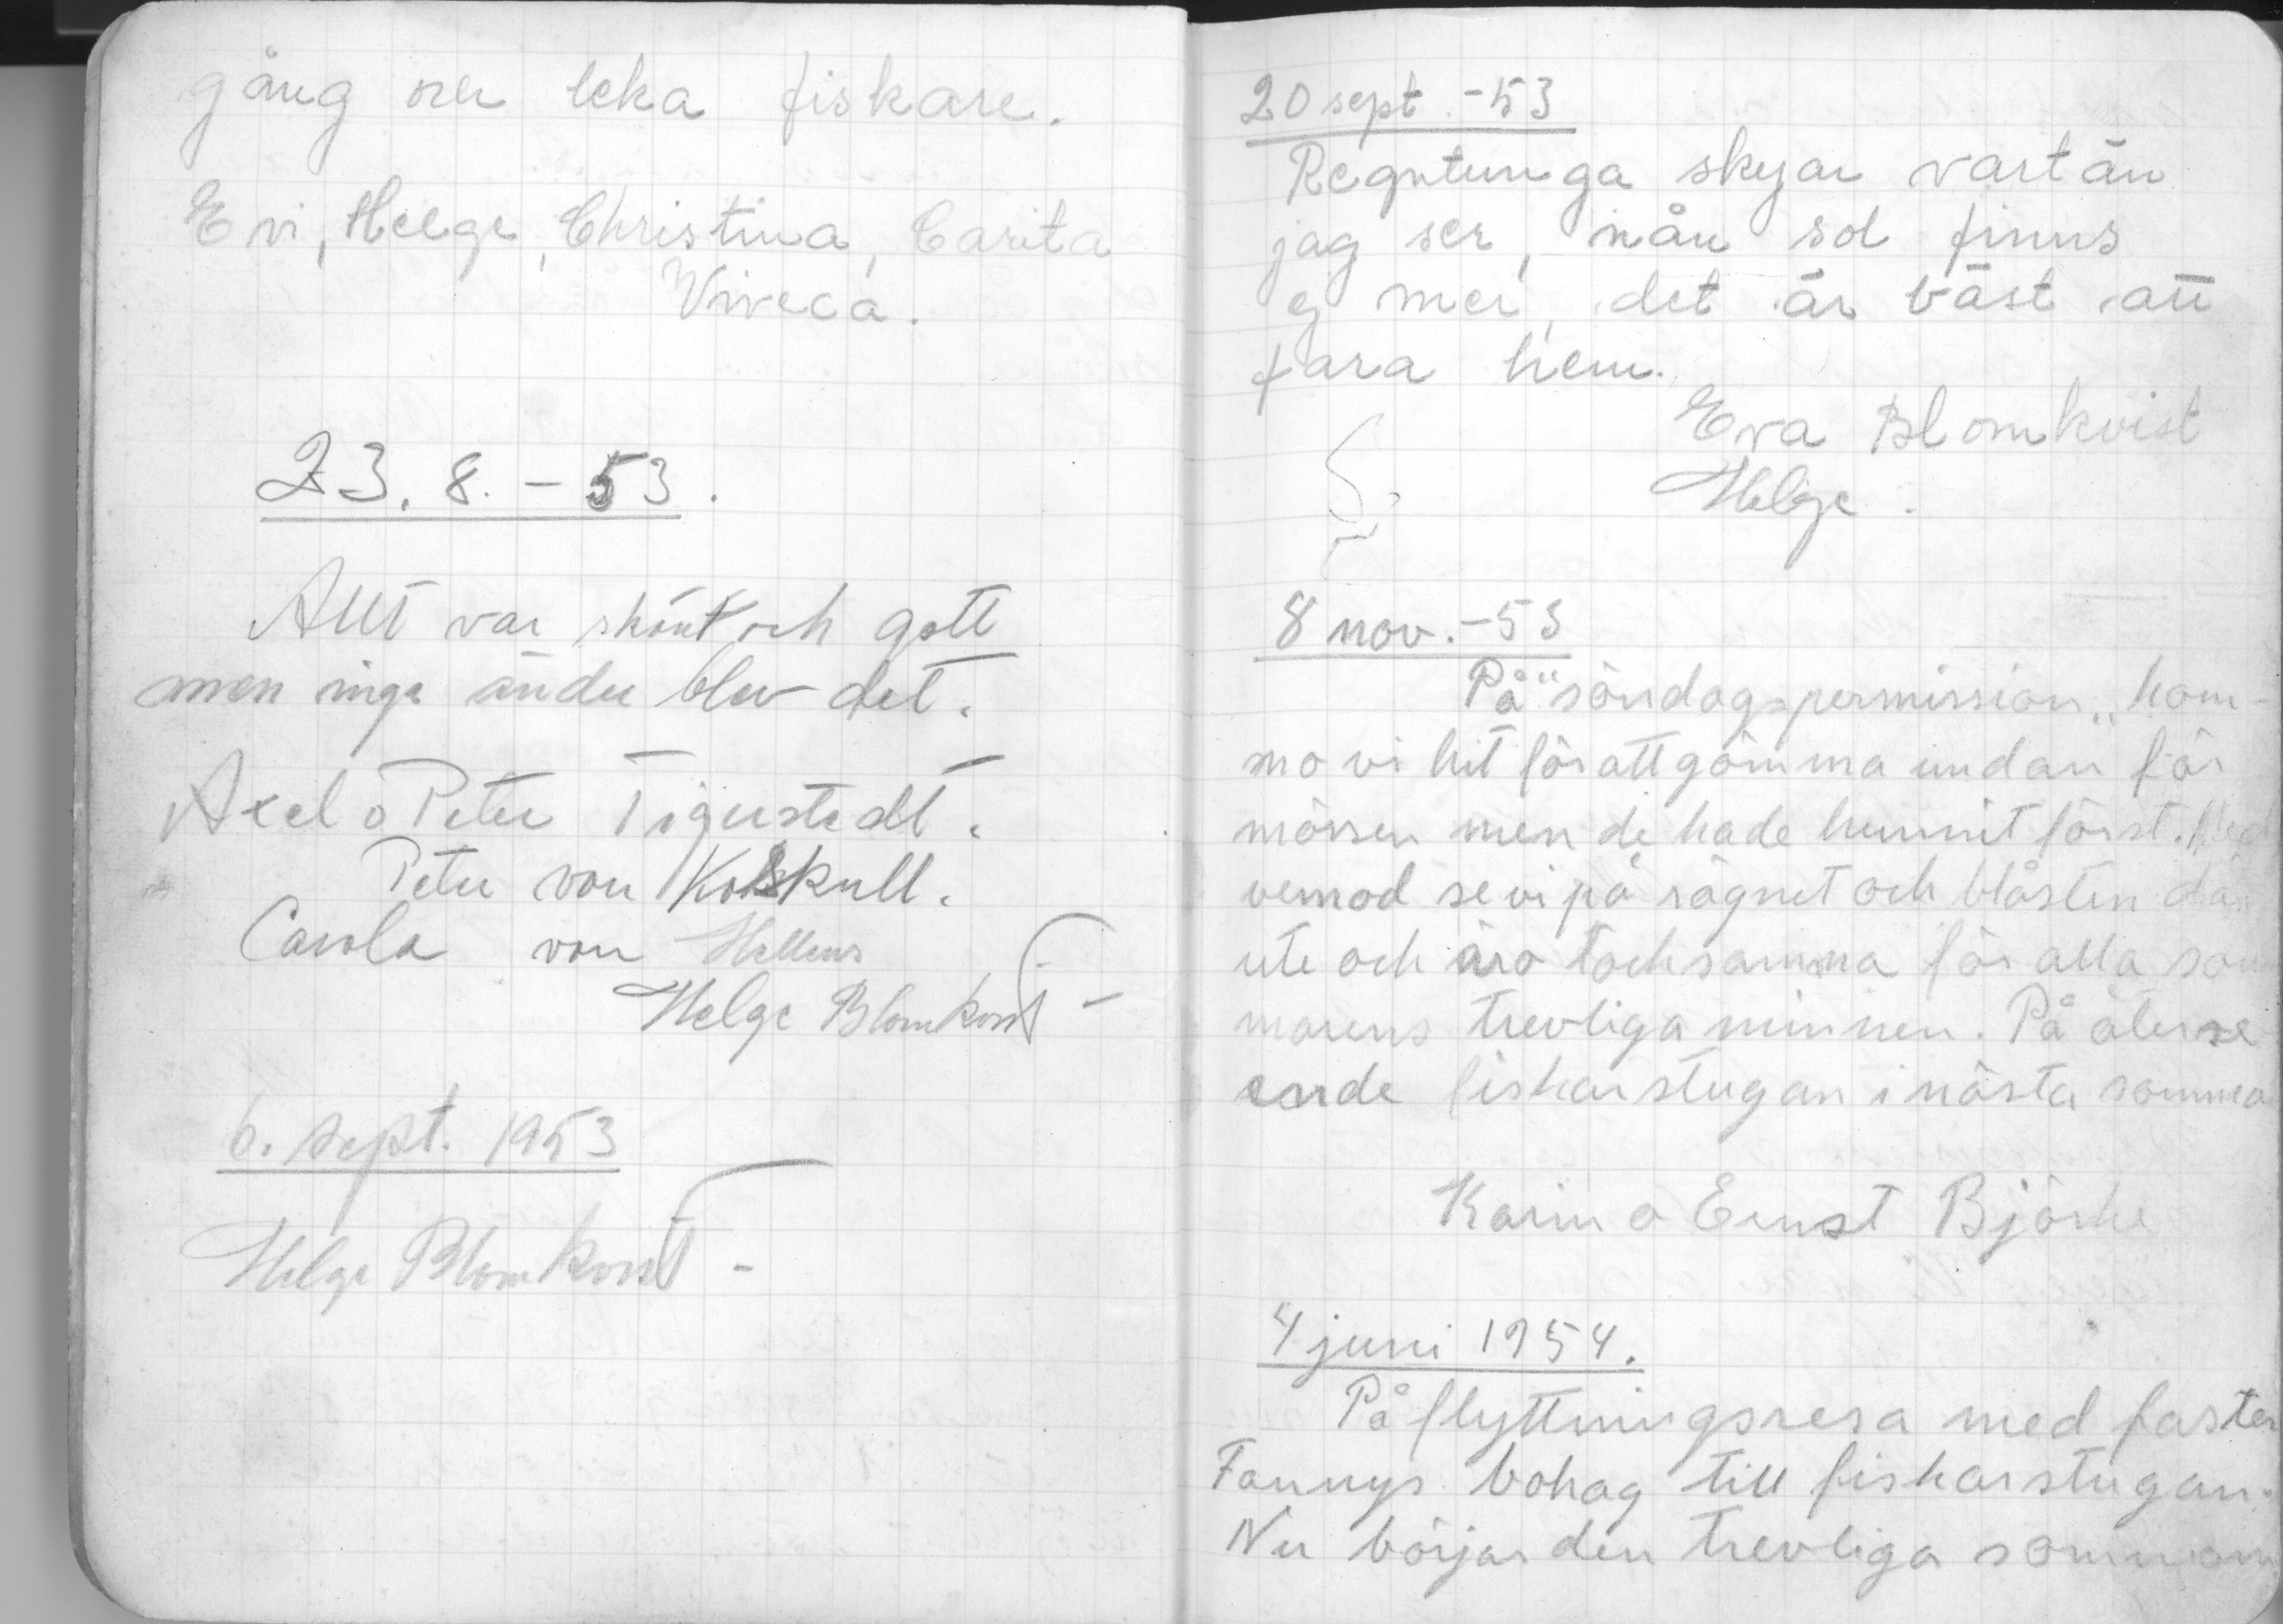 gång och leka fiskare.
Evi, Helge, Christina, Carita
Viveca.
23. 8. - 53.
Allt var skönt och gott
men inga änder blev det.
Axel o Peter Tigerstedt.
Peter von Koskull.
Carola von Hellens
Helge Blomkvist -
6. sept. 1953
Helge Blomkvist -
20 sept. -53
Regntunga skyar vart än
jag ser, nån sol finns
ej mer, det är bäst att
fara hem.
Eva Blomkvist
Helge.
8 nov. -53
På "söndagspermission" kom-
mo vi hit för att gömma undan för
mössen men de hade hunnit först. Med
vemod se vi på rägnet och blåsten där
ute och äro tacksamma för alla som
marens trevliga minnen. På återse
ende fiskarstugan i nästa somma
Karin o Ernst Björke
4 juni 1954.
På flyttningsresa med faster
Fannys bohag till fiskarstugan.
Nu börjar den trevliga sommaren